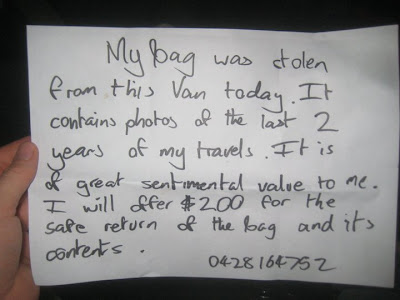 My bag was stolen
from this Van today. It
contains photos of the last 2
years of my travels. It is
of great sentimental value to me.
I will offer $200 for the
safe return of the bag and its
contents.
0428164752